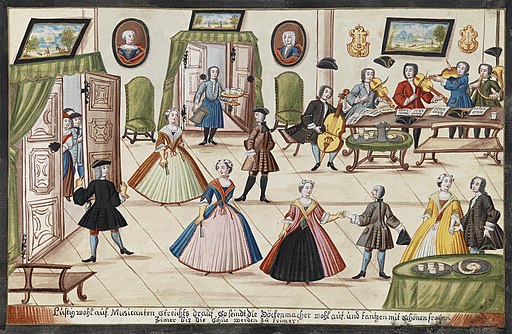 Lustig wohl auf Musicanten streichts drauf, so seindt die Döckenmacher wohl auf, und tantzen mit schönen frauen
Zimer bis die Schue werden zu trimer.